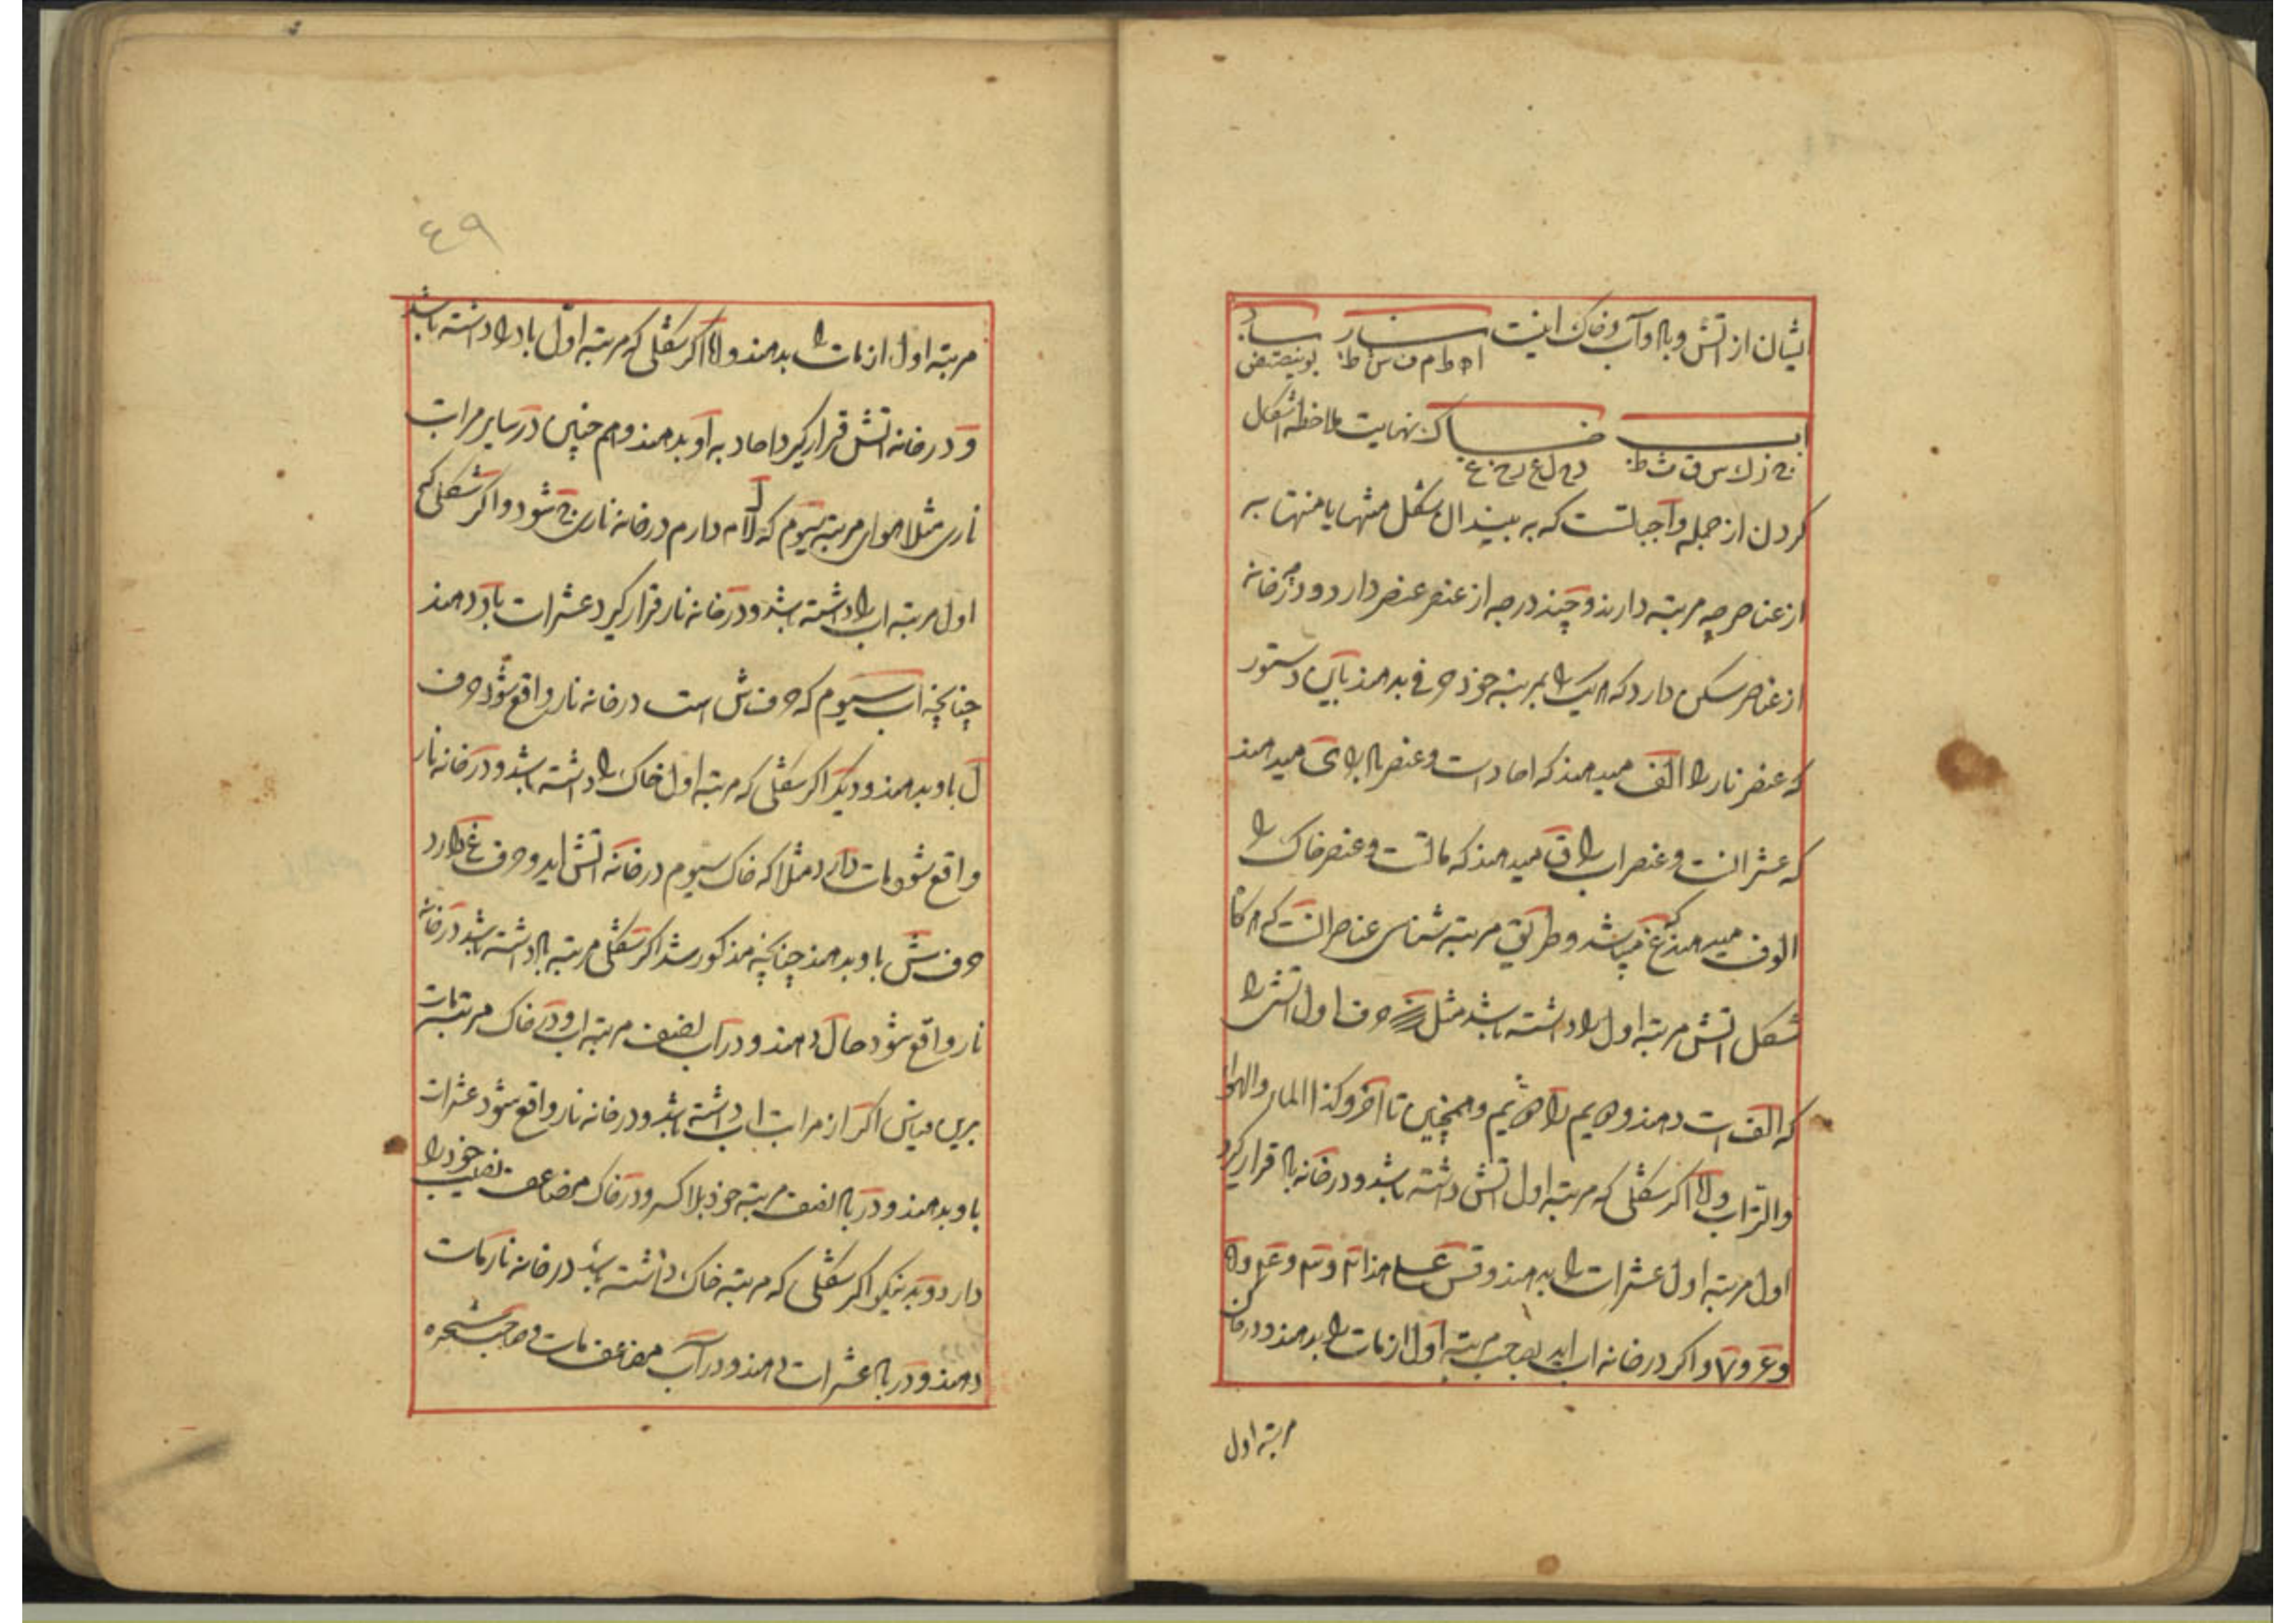 ایشان از اتش و باد و آب و خاک اینست نار باد
ا ه ط م ف ش ط: بوینصتض
اب خاک نهایت ملاحظه اشکال
ج ز ک س ق ث ظ: د ح ل ع ر خ غ
کردن از جمله واجباتست که به بیند ان شکل منتها یا منتها به
از عناصر چه مرتبه دارند و چند درجه از عنصر عنصر دارد و در چه خانه
از عناصر سکن دارد که هریک را بمرتبه خود حرفی بدهند باین دستور
که عنصر نار را الف میدهند که احاد است و عنصر باد را ی میدهند
که عشراتست و عنصر اب را ق میدهند که ماتست و عنصر خاک را
الوف میدهند که غ میباشد و طریق مرتبه شناسی عناصر انست که هرگاه
شکل اتش مرتبه اول را داشته باشد مثل حرف اول اتش را
که الف است دهند و دویم را دویم و همچنین تا آخر و کذا الماء والهواء
والتراب والا اگر شکلی که مرتبه اول اتش داشته باشد و در خانه باد قرار گیرد
اول مرتبه اول عشرات را بدهند و قس علی هذا
و اگر در خانه اب اید بموجب مرتبه اول از مات را بدهند و در خاک
مرتبه اول
٤٩
مرتبه اول از مات را بدهند والا اگر شکلی که مرتبه اول باد را داشته باشد
و در خانه اتش قرار گیرد احاد به او بدهند و هم چنین در سایر مراتب
ناری مثلا هوای مرتبه سیوم که لام دارم در خانه ناری ج شود و اگر شکلی که
اول مرتبه اب را داشته باشد و در خانه نار قرار گیرد عشرات باو دهند
چنانچه اب سیوم که حرف ش است در خانه نار واقع شود حرف
ل باو بدهند و دیگر اگر شکلی که مرتبه اول خاک را داشته باشد و در خانه نار
واقع شود مات دارد مثلا که خاک سیوم در خانه اتش اید و حرف غ دارد
حرف ش باو بدهند چنانچه مذکور شد اگر شکلی مرتبه باد داشته باشد در خانه
نار واقع شود حال دهند و در اب لضعف مرتبه او و در خاک مرتبه مات
برین قیاس اگر از مراتب اب داشته باشد و در خانه نار واقع شود عشرات
باو بدهند و در باد لضعف مرتبه خود بلا کسر و در خاک مضاعف نصیب خود را
دارد و بدینگونه اگر شکلی که مرتبه خاک داشته باشد در خانه نار مات
دهند و در باد عشرات دهند و در آب مضاعف مات و صاحب شجره